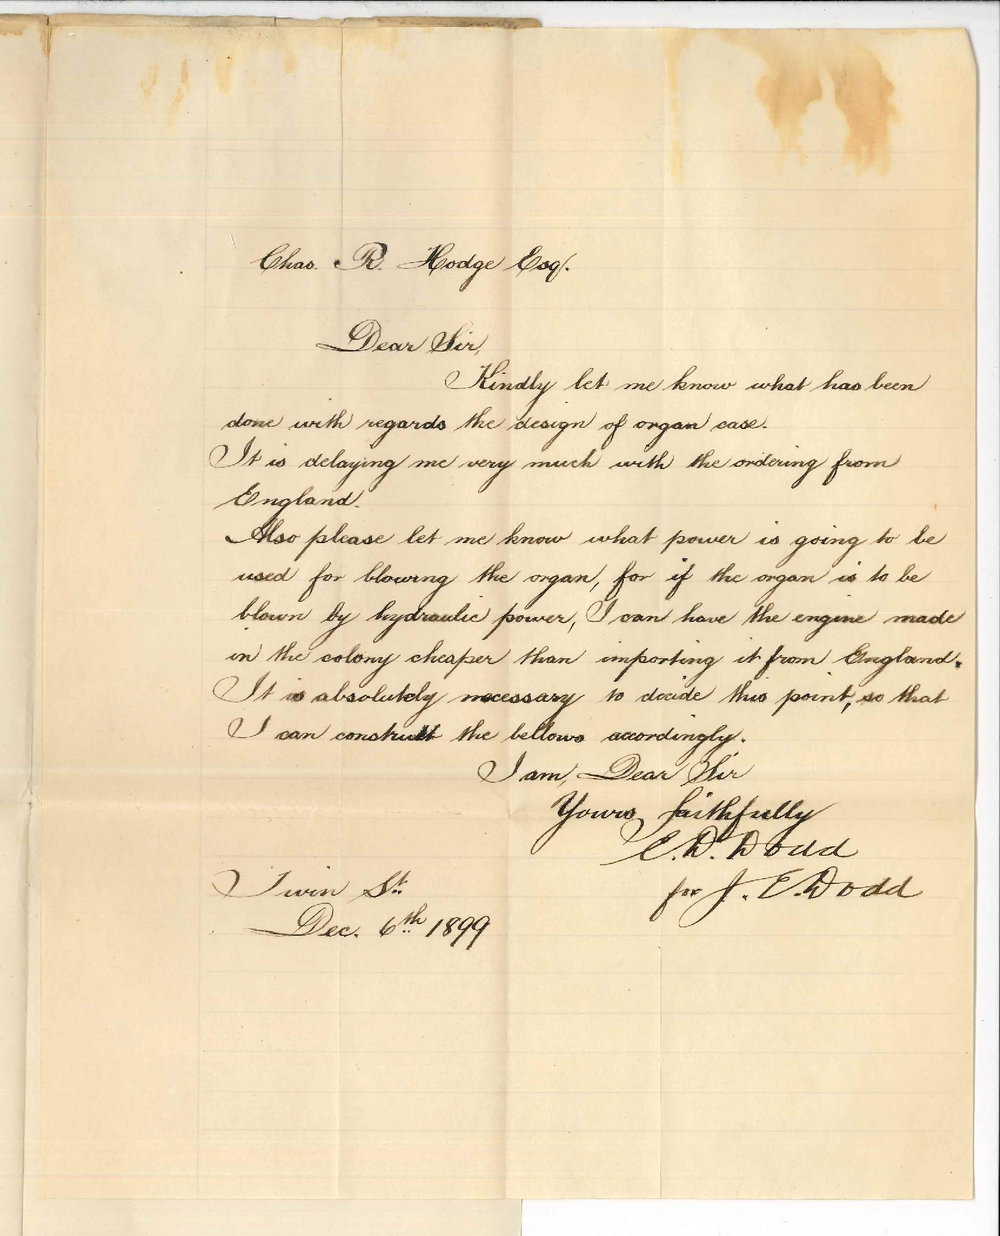 Chas. R. Hodge Esq.
Dear Sir,
Kindly let me know what has been
done with regards the design of organ case.
It is delaying me very much with the ordering from
England.
Also please let me know what power is going to be
used for blowing the organ, for if the organ is to be
blown by hydraulic power, I can have the engine made
in the colony cheaper than importing it from England.
It is absolutely necessary to decide this point, so that
I can construct the bellows accordingly.
I am, Dear Sir
Yours faithfully
E. D. Dodd
for J. E. Dodd
Twin St.
Dec. 6th 1899